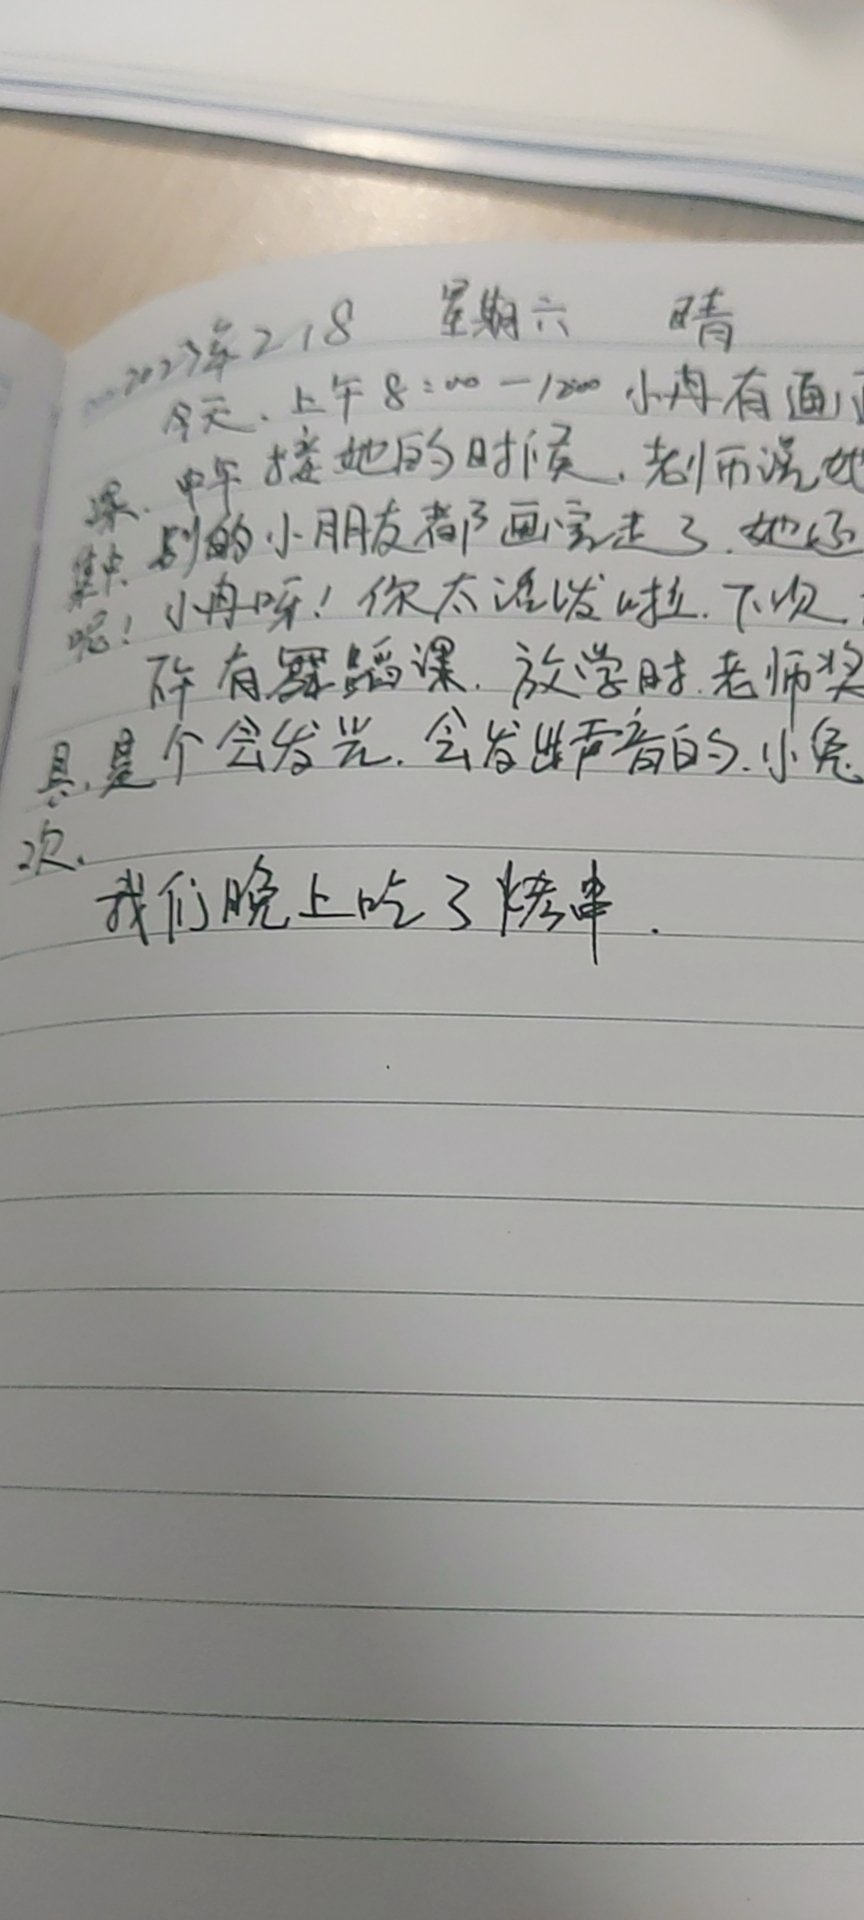 2023年2.18 星期六 晴
今天.上午8:00-12:00 小冉有画画
课.中午接她的时候.老师说她
集中.别的小朋友都画完走了.她还
呢！小冉呀！你太活泼啦.下次.
下午有舞蹈课.放学时.老师奖
具.是个会发光.会发出声音的.小兔
次.
我们晚上吃了烤串.